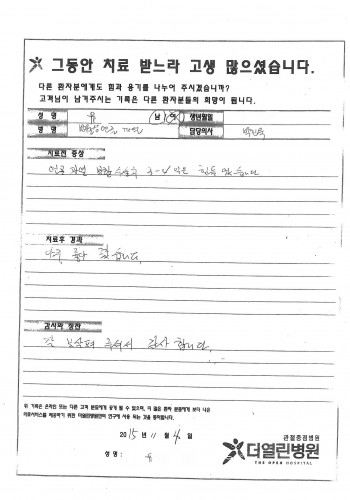 그동안 치료 받느라 고생 많으셨습니다.
다른 환자분에게도 힘과 용기를 나누어 주시겠습니까?
고객님이 남겨주시는 기록은 다른 환자분들의 희망이 됩니다.
성 명 유 남 여 생년월일
병 명 담당의사
치료전 증상
수술후 3-4 힘들었습니다
치료후 경과
아주 좋습니다.
감사와 칭찬
잘 보살펴 주셔서 감사합니다.
위 기록은 온라인 또는 다른 고객 분들에게 공개 될 수 있으며, 더 많은 환자 분들에게 보다 나은
의료서비스를 제공하기 위한 더열린병원만의 연구에 사용 되는 것을 동의합니다.
2015년 11월 4일
성 명 : 유
관절중점병원
더열린병원
THE OPEN HOSPITAL